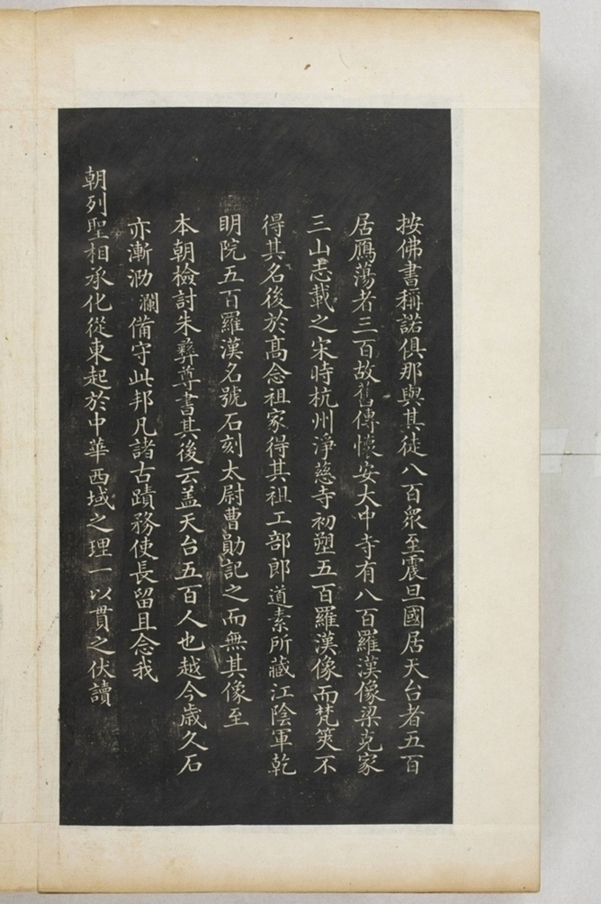 按佛書稱諾俱那與其徒八百衆至震旦國居天台者五百
居鴈蕩者三百故舊傳懷安大中寺有八百羅漢像梁克家
三山志載之宋時杭州淨慈寺初塑五百羅漢像而梵筴不
得其名後於高念祖家得其祖工部郎道素所藏江陰軍乾
明院五百羅漢名號石刻太尉曹勛記之而無其像至
本朝檢討朱彝尊書其後云盖天台五百人也越今歲久石
亦漸泐瀾備守此邦凡諸古蹟務使長留且念我
朝列聖相承化從東起於中華西域之理一以貫之伏讀